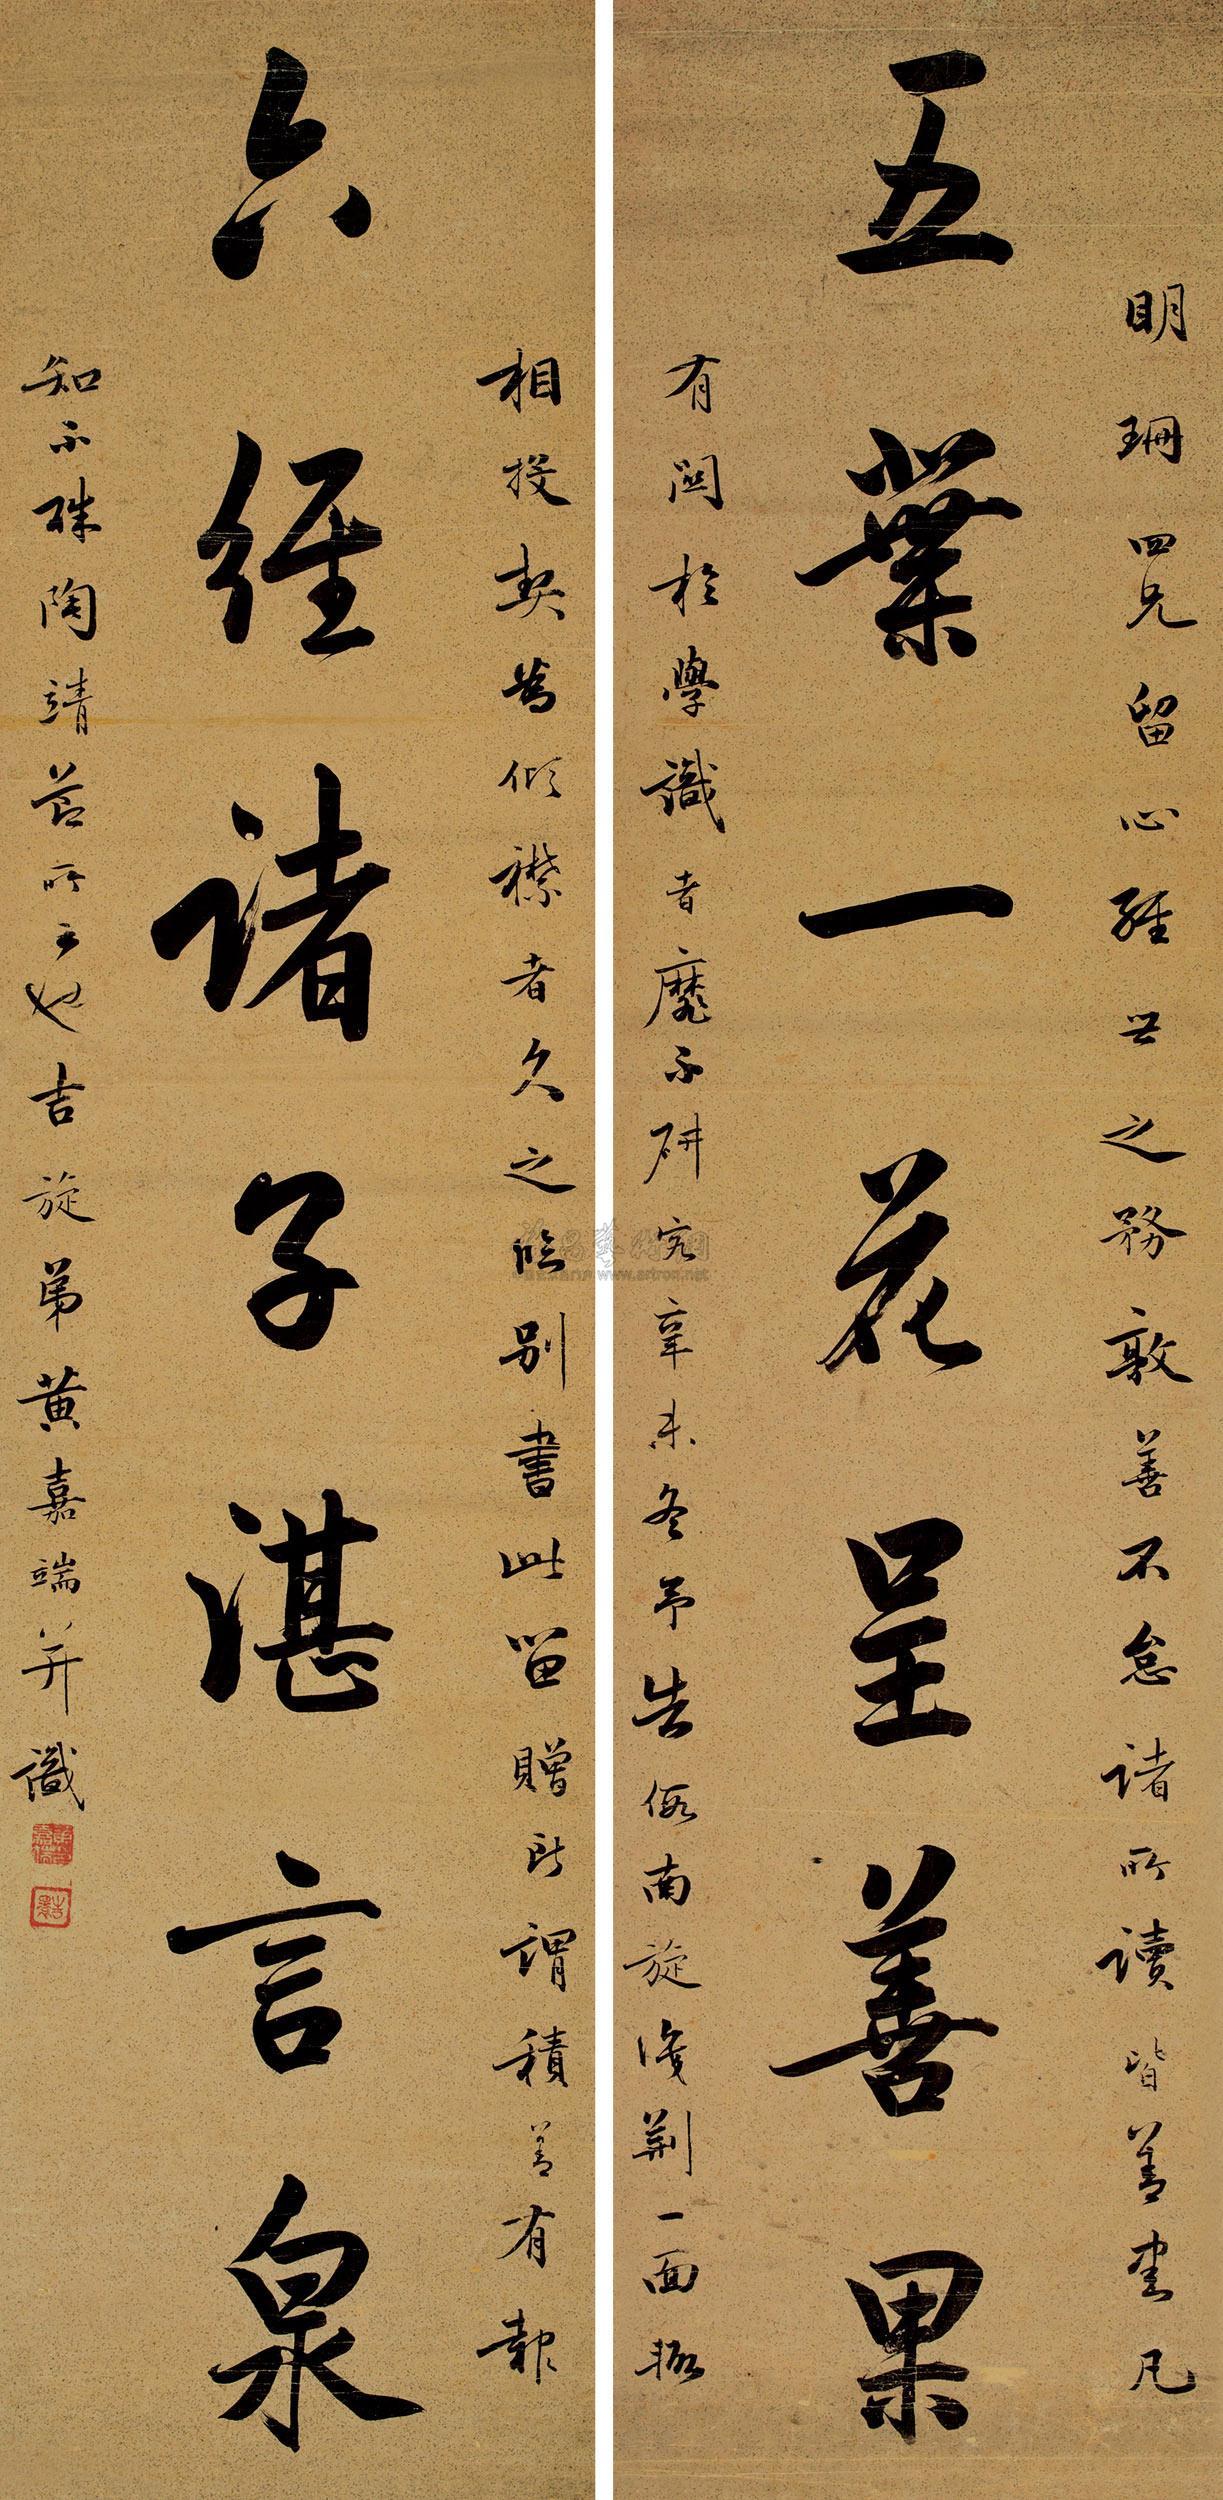 五葉一花呈善果
明珊四兄留心經世之務敦善不怠諸所讀皆善書凡
有関於學識者靡不研究辛未冬予告假南旋識荆一面輒
六經諸子湛言泉
相投契為傾襟者久之臨別書此留贈所謂積善有報
知不殊陶靖節所云也吉旋弟黄嘉端并識
www.artron.net